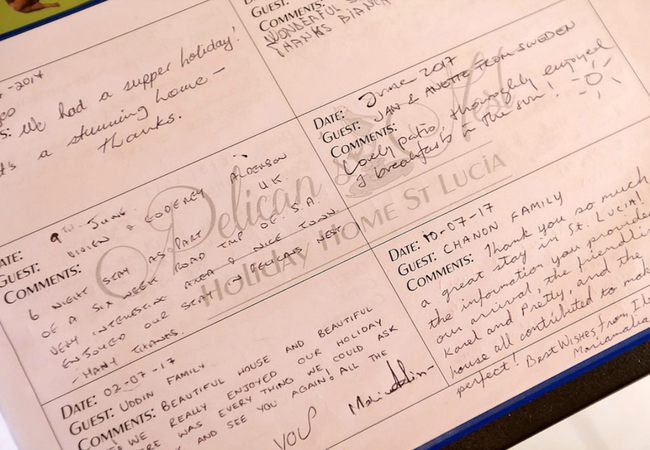 COMMENTS:
WONDERFUL
THANKS BIANCA
-2017
We had a supper holiday!
a stunning home -
thanks.
DATE: June 2017
GUEST: JAN & ANETTE FROM SWEDEN
COMMENTS:
Lovely patio, thoroughly enjoyed
breakfasts in the sun!
Pelican Nest
Holiday Home St Lucía
DATE: 9TH JUNE
GUEST: VIVIEN & GODFREY ALDERSON
UK
COMMENTS:
6 NIGHT STAY AS PART
OF A SIX WEEK ROAD TRIP OF S.A.
VERY INTERESTING AREA & NICE TOWN
ENJOYED OUR STAY @ PELICANS NEST
- MANY THANKS.
DATE: 10-07-17
GUEST: CHANON FAMILY
COMMENTS: Thank you so much
a great stay in St. Lucia!
the information you provided
our arrival, the friendlin
Karel and Pretty, and the
house all contributed to make
perfect! Best Wishes from,
DATE: 02-07-17
GUEST: UDDIN FAMILY
COMMENTS: BEAUTIFUL HOUSE AND BEAUTIFUL
WE REALLY ENJOYED OUR HOLIDAY
WAS EVERYTHING WE COULD ASK
AND SEE YOU AGAIN! ALL THE